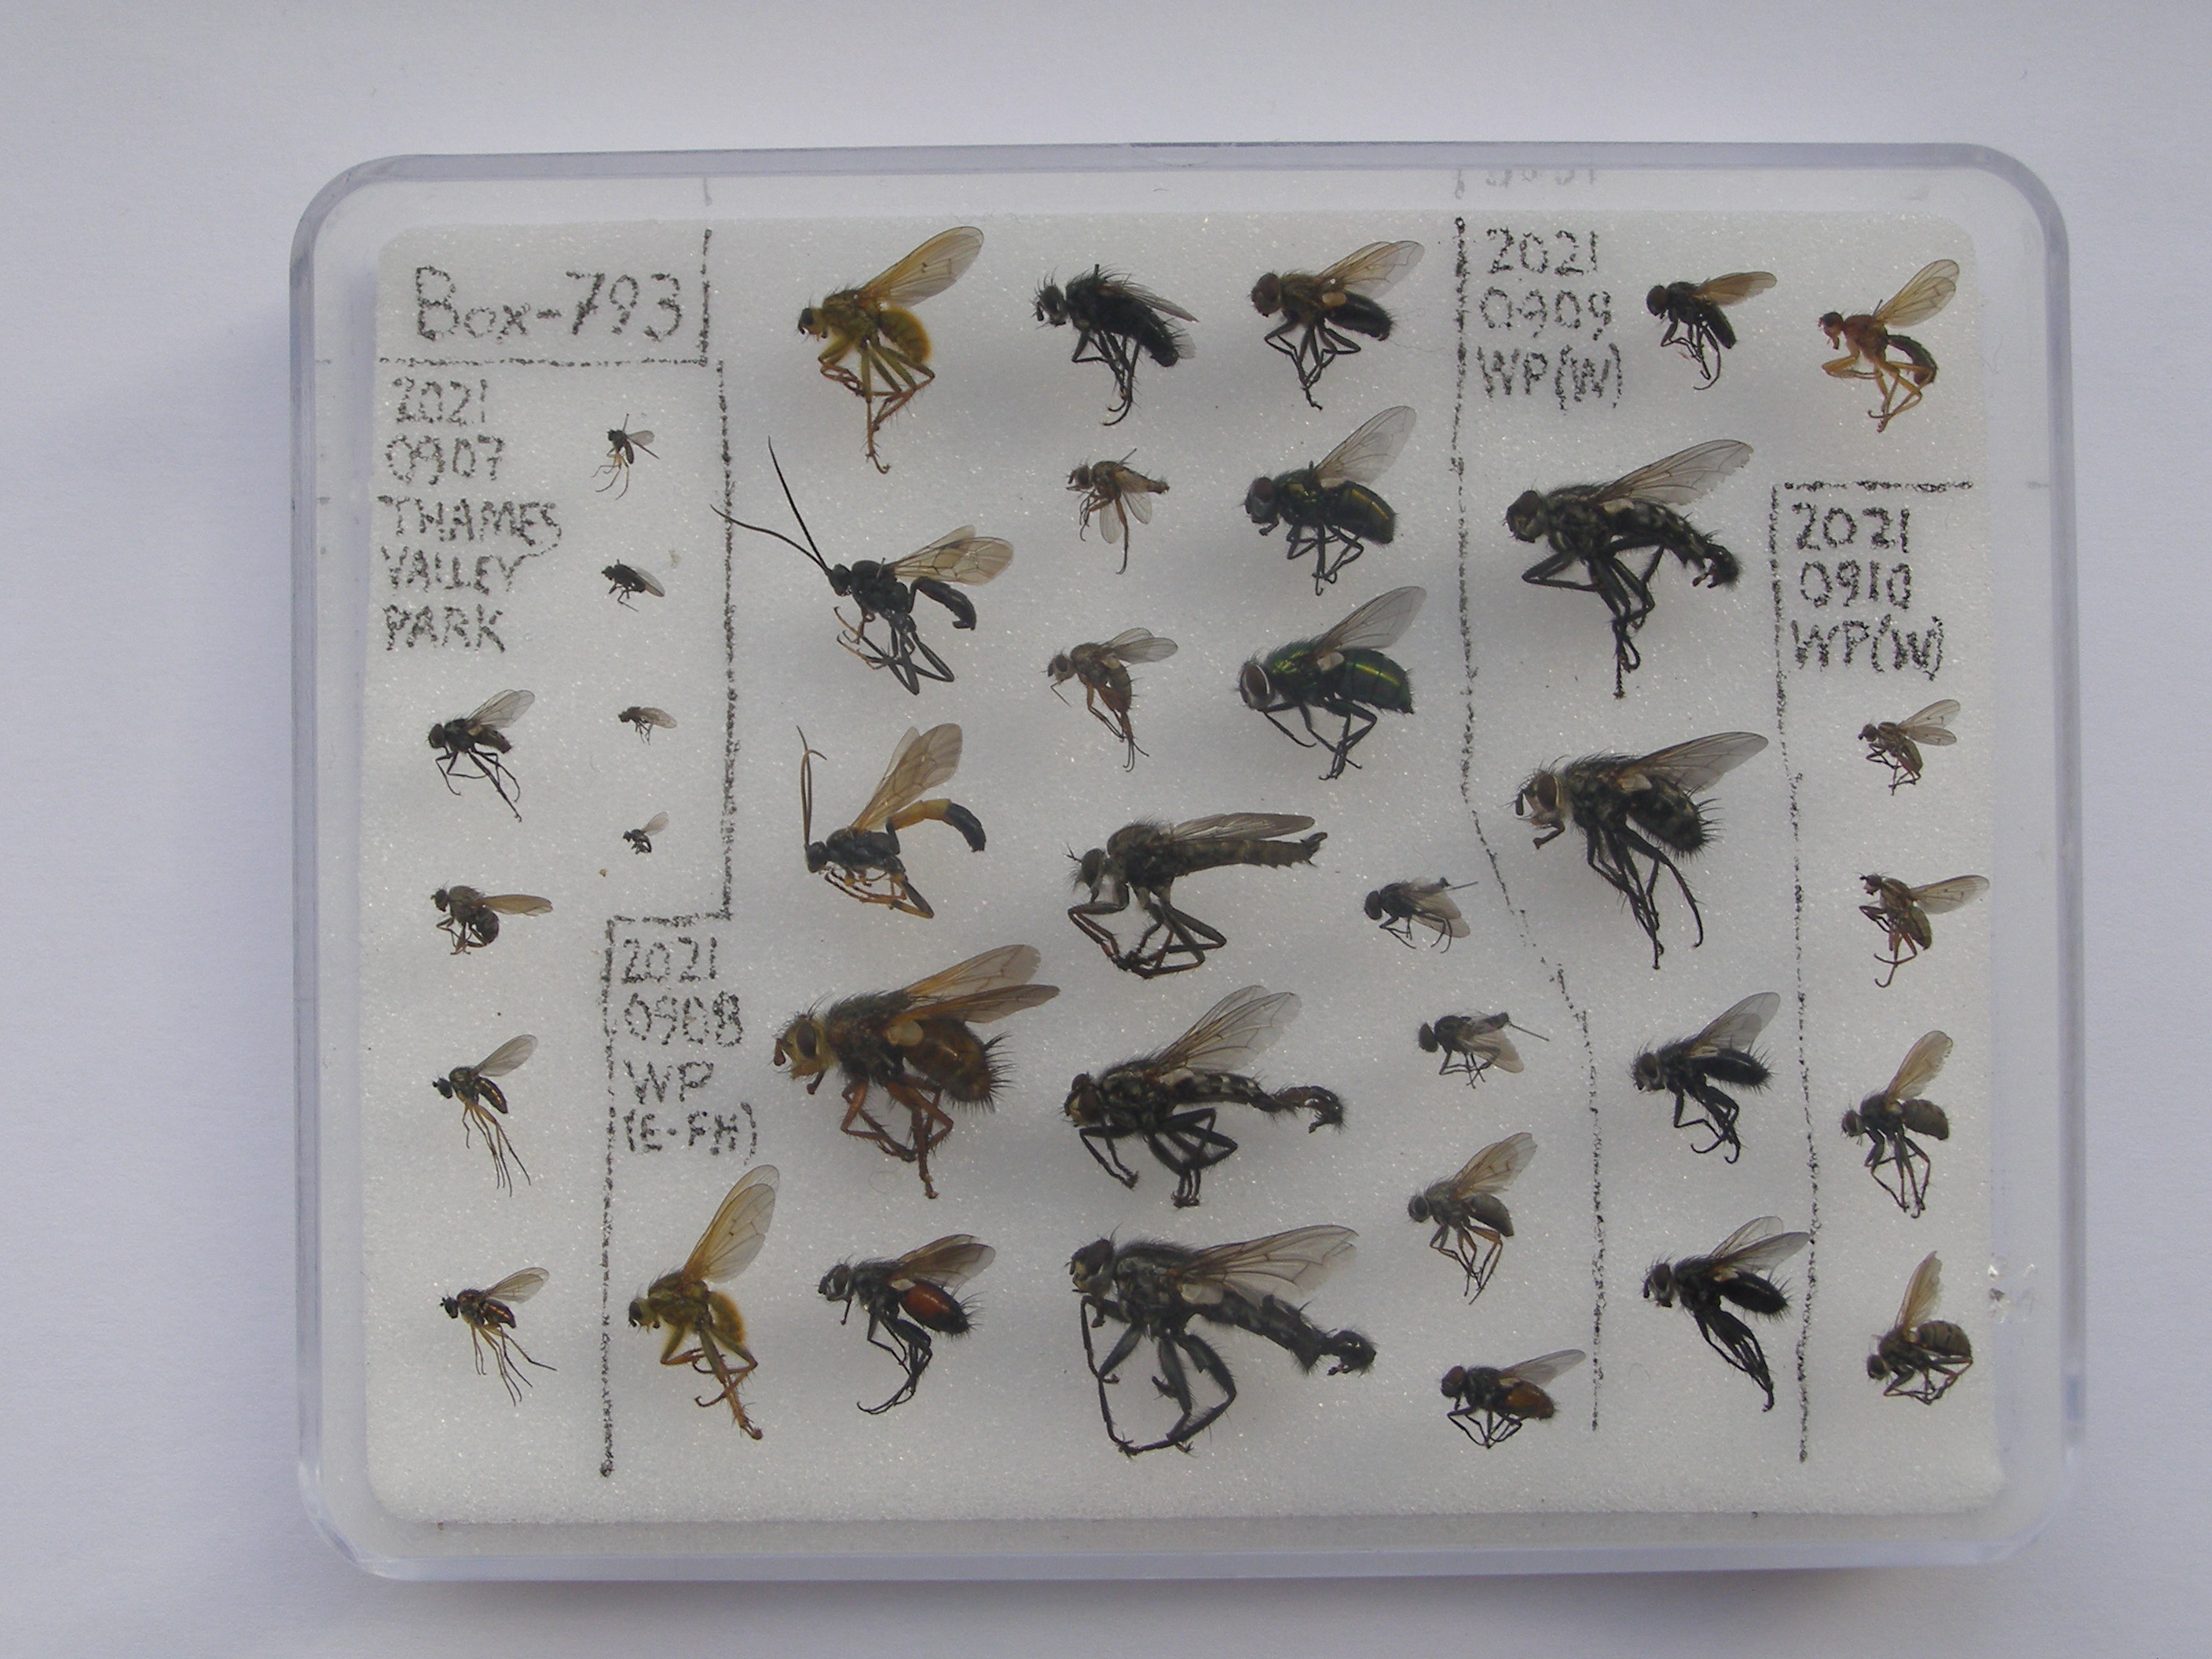 Box-793
2021
0907
THAMES
VALLEY
PARK
2021
0908
WP
2021
0909
WP(W)
2021
0910
WP(W)